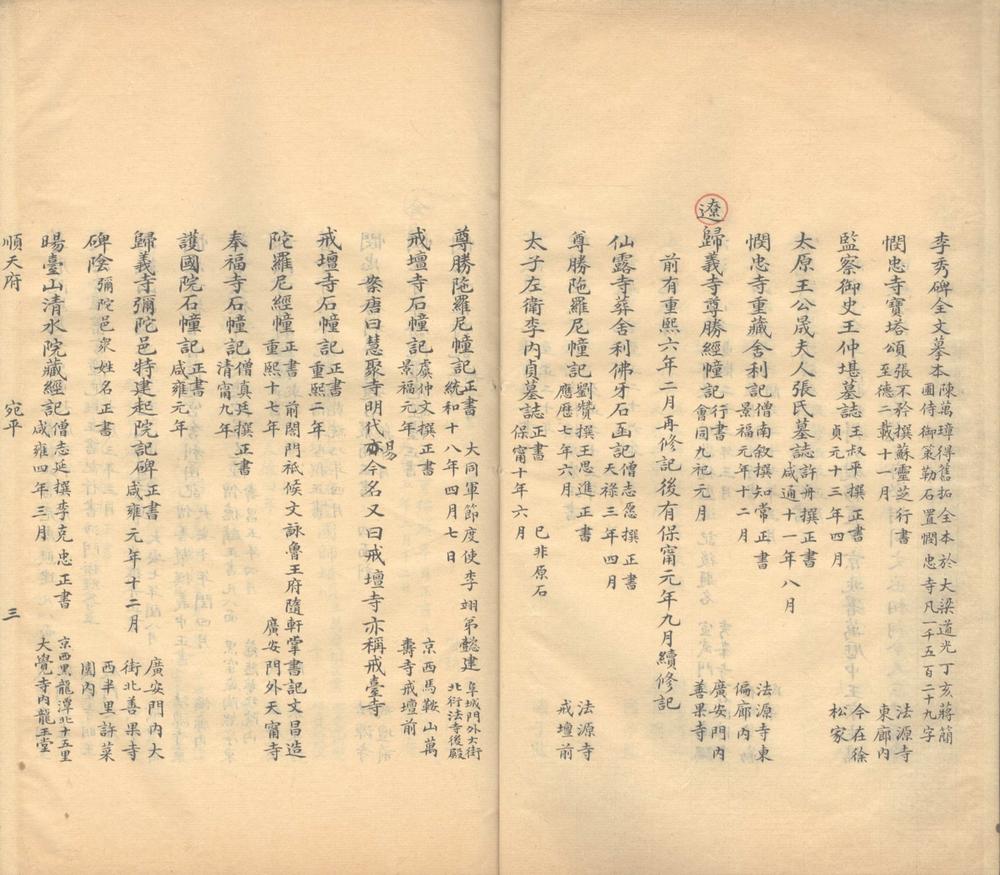 李秀碑全文摹本陳萬璋得舊拓全本於大梁道光丁亥蔣簡
圃侍御策勒石置憫忠寺凡一千五百二十九字
憫忠寺寶塔頌張不矜撰蘇靈芝行書
至德二載十一月
法源寺
東廊內
監察御史王仲堪墓誌王叔平撰正書
貞元十三年四月
今在徐
松家
太原王公晟夫人張氏墓誌許舟撰正書
咸通十一年八月
憫忠寺重藏舍利記僧南敘撰知常正書
景福元年十二月
法源寺東
偏廊內
遼
歸義寺尊勝經幢記行書
會同九年元月
廣安門內
善果寺
前有重熙六年二月再修記後有保甯元年九月續修記
仙露寺葬舍利佛牙石函記僧志愿撰正書
天祿三年四月
尊勝陁羅尼幢記劉贊撰王思進正書
應曆七年六月
法源寺
戒壇前
太子左衛李內貞墓誌正書
保甯十年六月
已非原石
尊勝陁羅尼幢記正書
統和十八年四月七日
大同軍節度使李翊弟懿建
阜城門外大街
北衍法寺後殿
戒壇寺石幢記虞仲文撰正書
景福元年
京西馬鞍山萬
壽寺戒壇前
案唐曰慧聚寺明代亦今名又曰戒壇寺亦稱戒臺寺
易
戒壇寺石幢記正書
重熙二年
陀羅尼經幢正書前閤門祗候文詠魯王府隨軒掌書記文昌造
重熙十七年
廣安門外天甯寺
奉福寺石幢記僧真延撰正書
清甯九年
護國院石幢記正書
咸雍元年
歸義寺彌陀邑特建起院記碑正書
咸雍元年十二月
廣安門內大
街北善果寺
碑陰彌陀邑眾姓名正書
西半里許菜
園內
暘臺山清水院藏經記僧志延撰李克忠正書
咸雍四年三月
京西黑龍潭北十五里
大覺寺內龍王堂
順天府
宛平
三